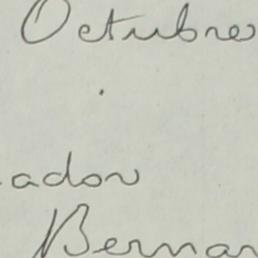 Octubre
ador
Bernar